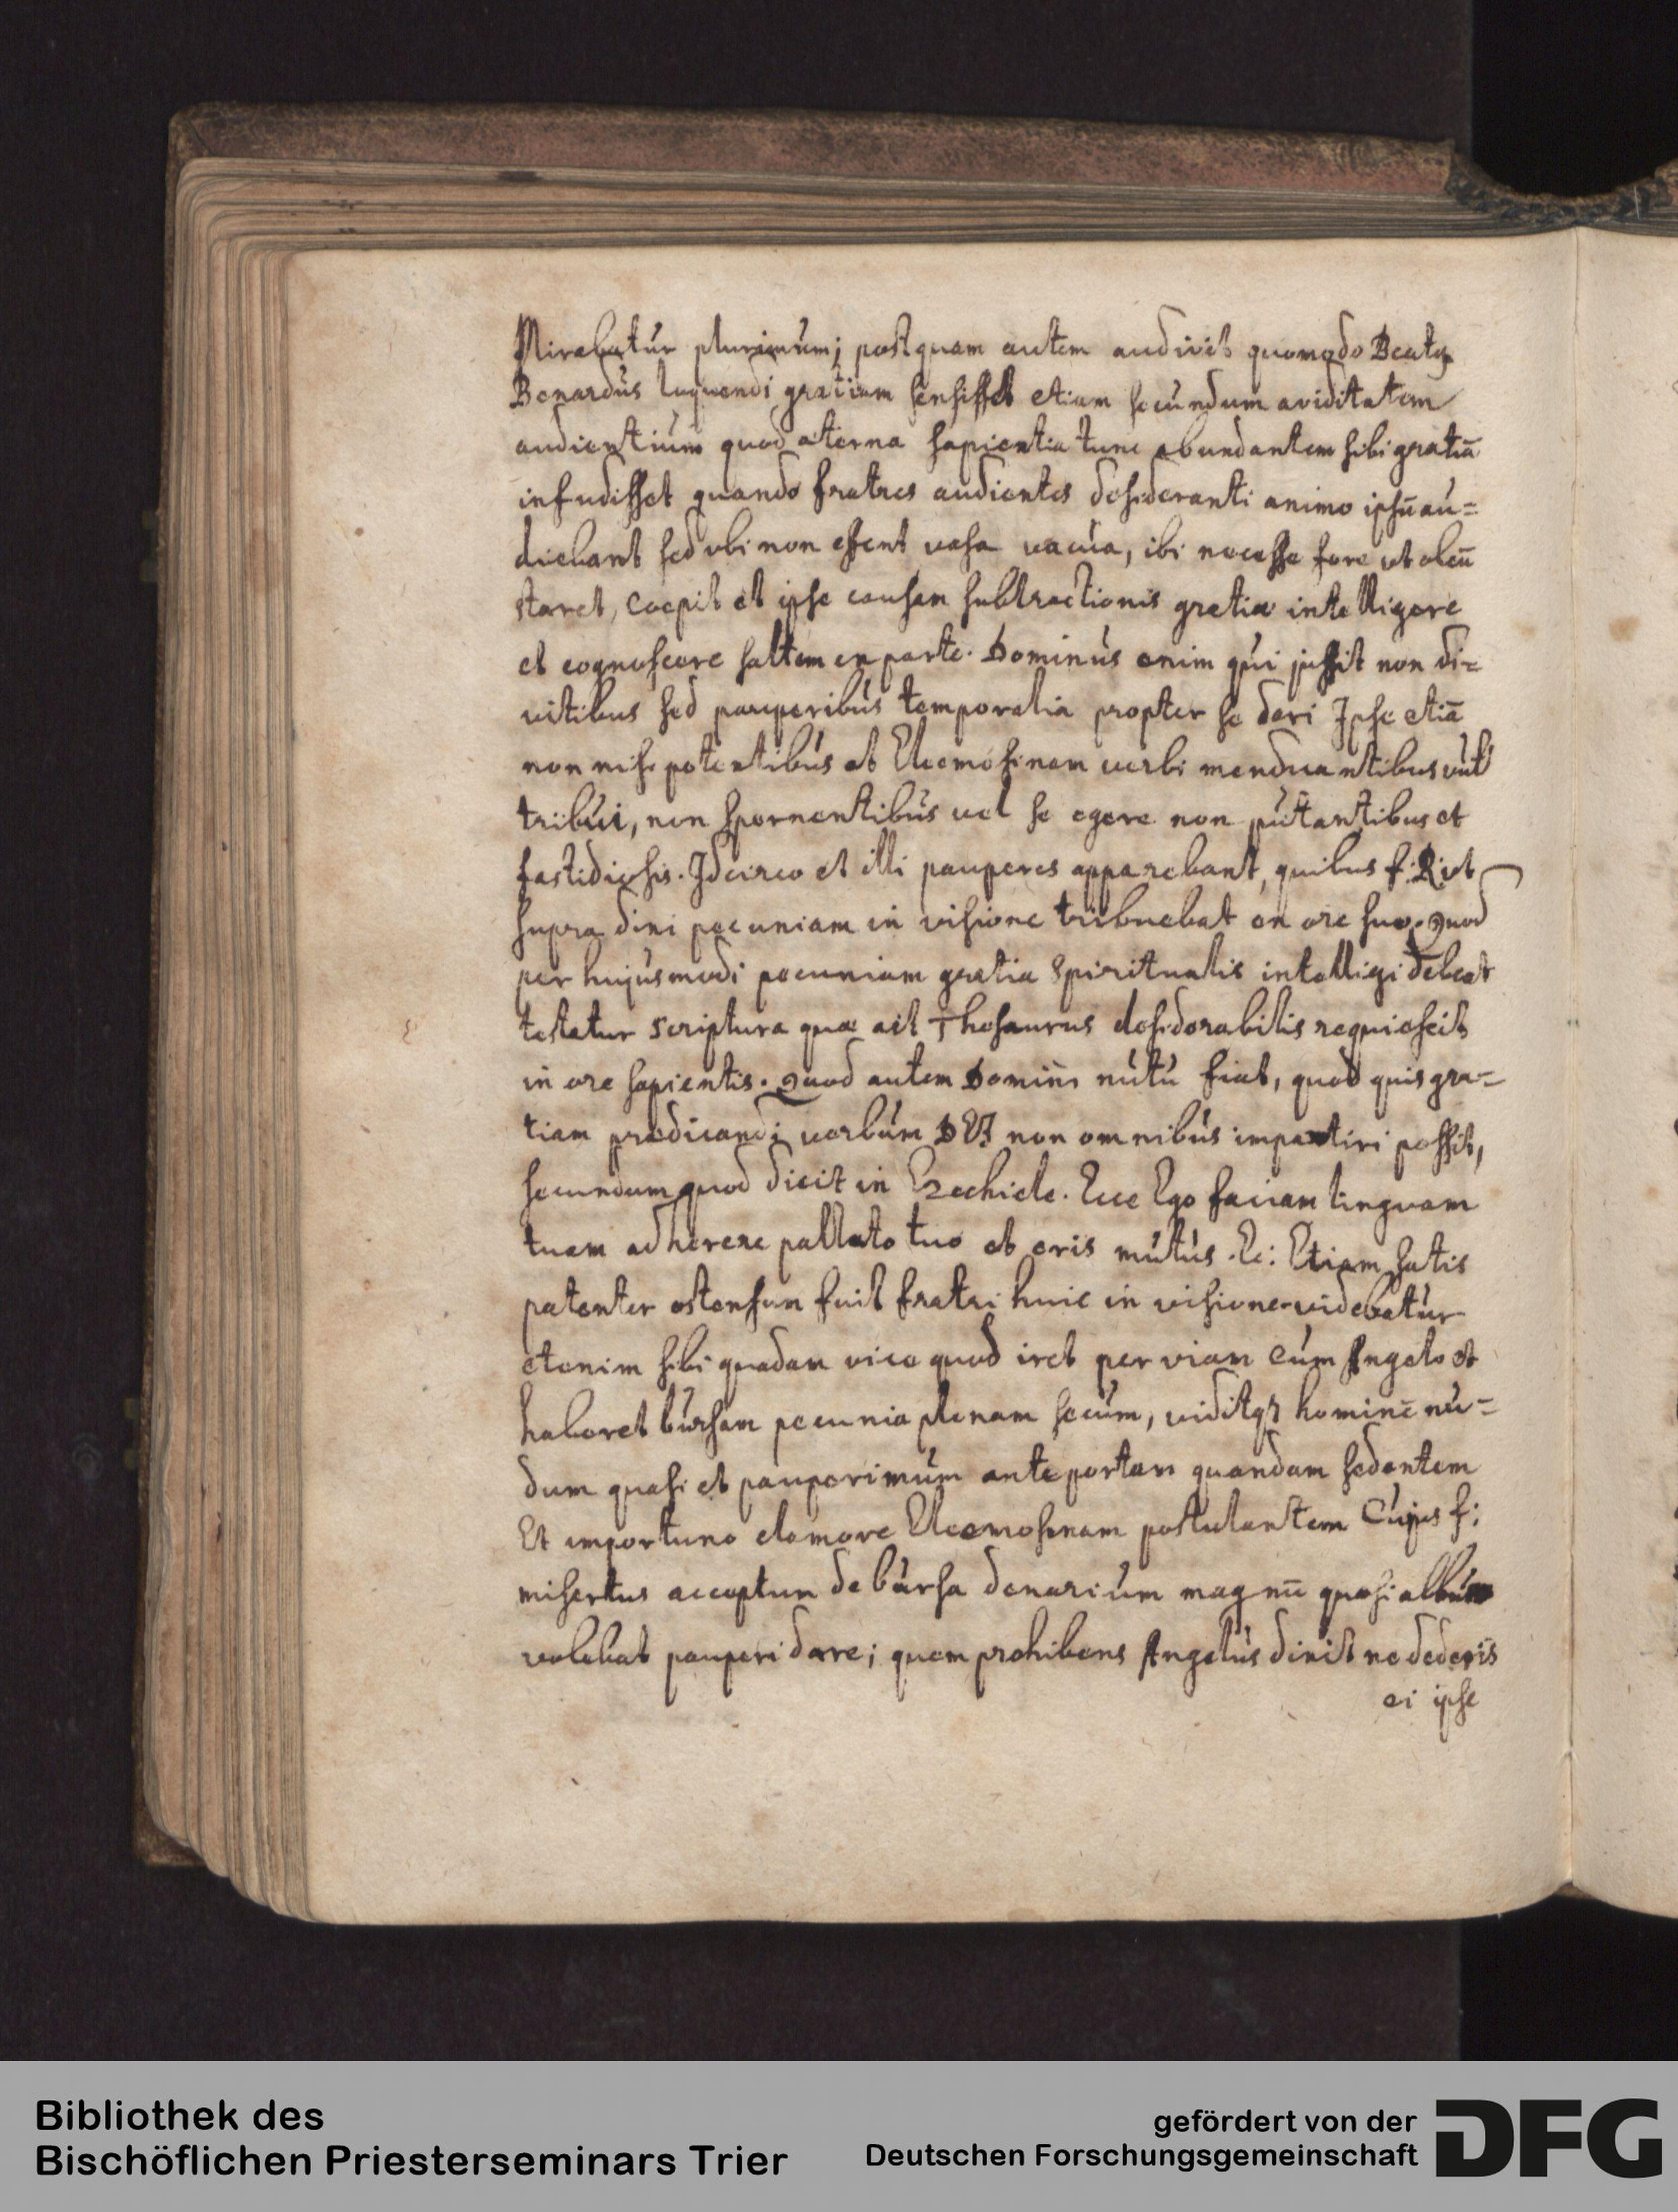 Mirabatúr plurimúm; postquam autem audivit quomodo Beatq
Benardús loquendi gratiam sensisset etiam secúndum aviditatem
audientiúm quod aeterna sapientia tunc abundantem sibi gratiā
infudisset quando fratres audientes desideranti animo ipsū aú=
diebant sed ubi non essent vasa vacúa, ibi necesse fore ut oleū
staret, Coepit et ipse causam subtractionis gratiae intelligere
et cognoscere saltem ex parte. Dominús enim qúi jussit non di=
vitibus sed pauperibús temporalia propter se dari Ipse etiā
non nisi potentibús et Eleemosinam verbi mendicantibus vúlt
tribúi, non spernentibús vel se egere non pútantibus et
fastidiosis. Idcirco et illi pauperes apparebant, quibus f. Rict
supra dixi pecuniam in visione tribuebat ex ore suo. Quod
per hujúsmodi pecuniam gratia Spiritualis intelligi debeat
testatur Scriptura quae ait Thesaurus desiderabilis requiescit
in ore sapientis. Quod autem Domini nútú fiat, quod quis gra=
tiam praedicandi verbúm DEI non omnibús impartiri possit,
secundum quod dicit in Ezechiele. Ecce Ego faciam linguam
tuam adherere pallato tuo et eris mútús. Ec: Etiam satis
patenter ostensum fuit fratri huic in visione videbatúr
etenim sibi quadam vice quod iret per viam Cúm Angelo et
haberet búrsam pecunia plenam secúm, viditqz hominē nú=
dum quasi et pauperimúm ante portam quandam sedentem
Et importuno clamore Eleemosinam postulantem Cújus f:
misertus acceptum de búrsa denariúm magnū quasi albúm
volebat pauperi dare; quem prohibens Angelús dixit ne dederis
ei ipse
Bibliothek des
Bischöflichen Priesterseminars Trier
gefördert von der
Deutschen Forschungsgemeinschaft
DFG